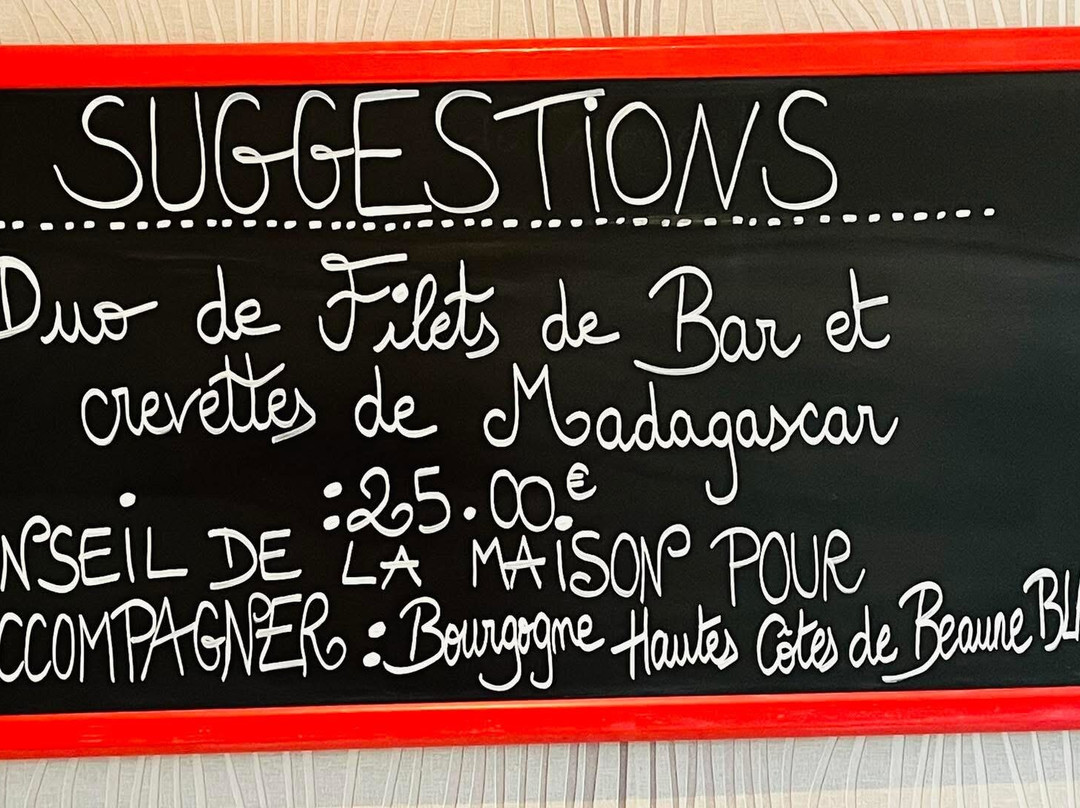 SUGGESTIONS
Duo de Filets de Bar et
crevettes de Madagascar
:25.00€
NSEIL DE LA MAISON POUR
CCOMPAGNER : Bourgogne Hautes Côtes de Beaune BL